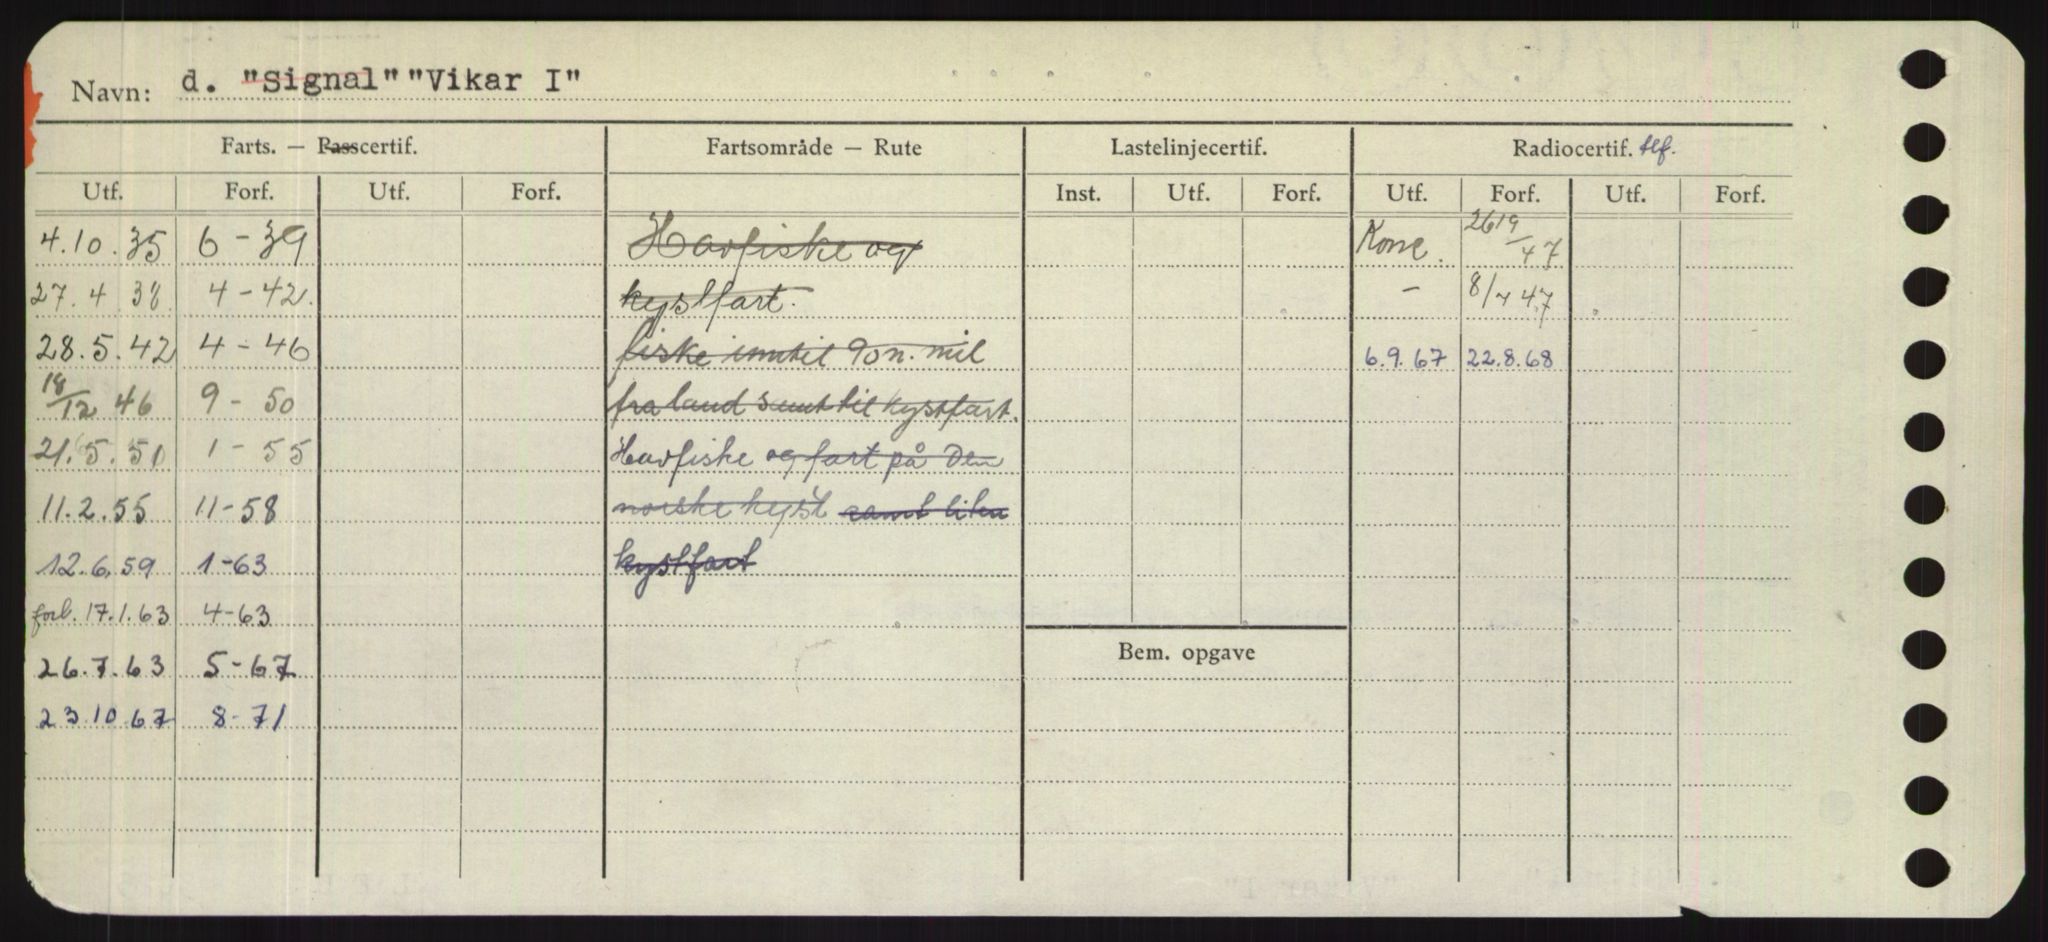 Navn: d. "Signal" "Vikar I"
Farts. — Passcertif. Fartsområde — Rute Lastelinjecertif. Radiocertif. tlf.
Utf. Forf. Utf. Forf. Inst. Utf. Forf. Utf. Forf. Utf. Forf.
4.10.35 6-39 Havfiske og 2619/47
27.4.38 4-42. kystfart. - 8/7 47
28.5.42 4-46 fiske inntil 90 n. mil 6.9.67 22.8.68
18/12 46 9-50 fra land samt til kystfart.
21.5.51 1-55 Havfiske og fart på Den
11.2.55 11-58 norske kyst samt liten
12.6.59 1-63 kystfart
forl. 17.1.63 4-63
26.7.63 5-67 Bem. opgave
23.10.67 8-71